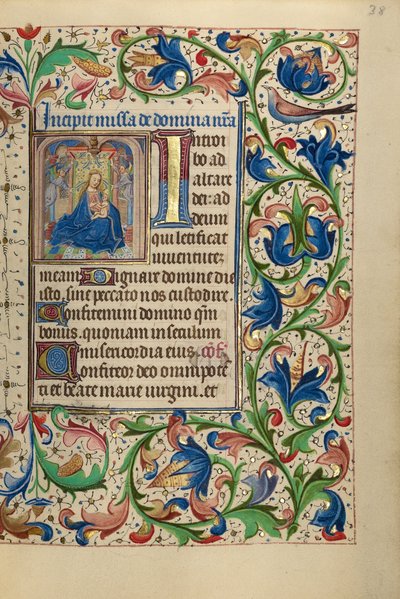 38
Incipit missa de domina nra
Introi
bo ad
altare
dei: ad
deum
qui letificat
iuuentutez
meam Dignare domine die
isto, sine peccato nos custodire
Confitemini domino qm̄
bonus. quoniam in seculum
misericordia eius. 
Confiteor deo omnipotē
ti et beate marie uirgini. et